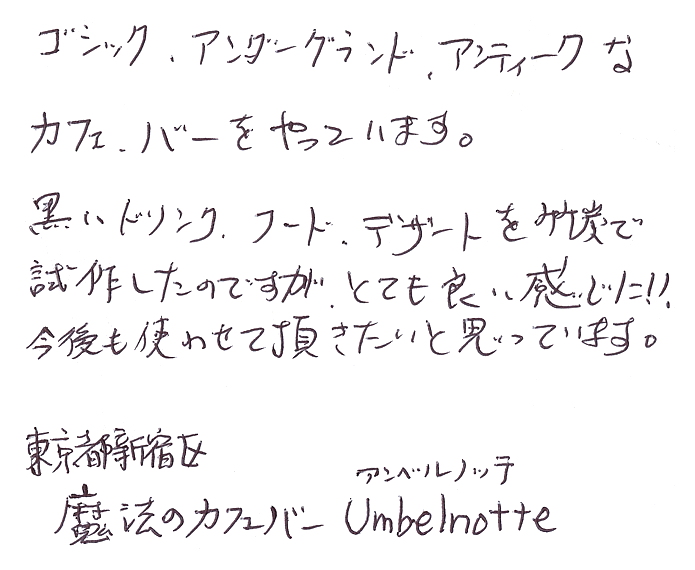 ゴシック、アンダーグランド、アンティークな
カフェ、バーをやっています。
黒いドリンク、フード、デザートを竹炭で
試作したのですが、とても良い感じでした!!
今後も使わせて頂きたいと思っています。
東京都新宿区
アンベルノッテ
魔法のカフェバー Umbelnotte